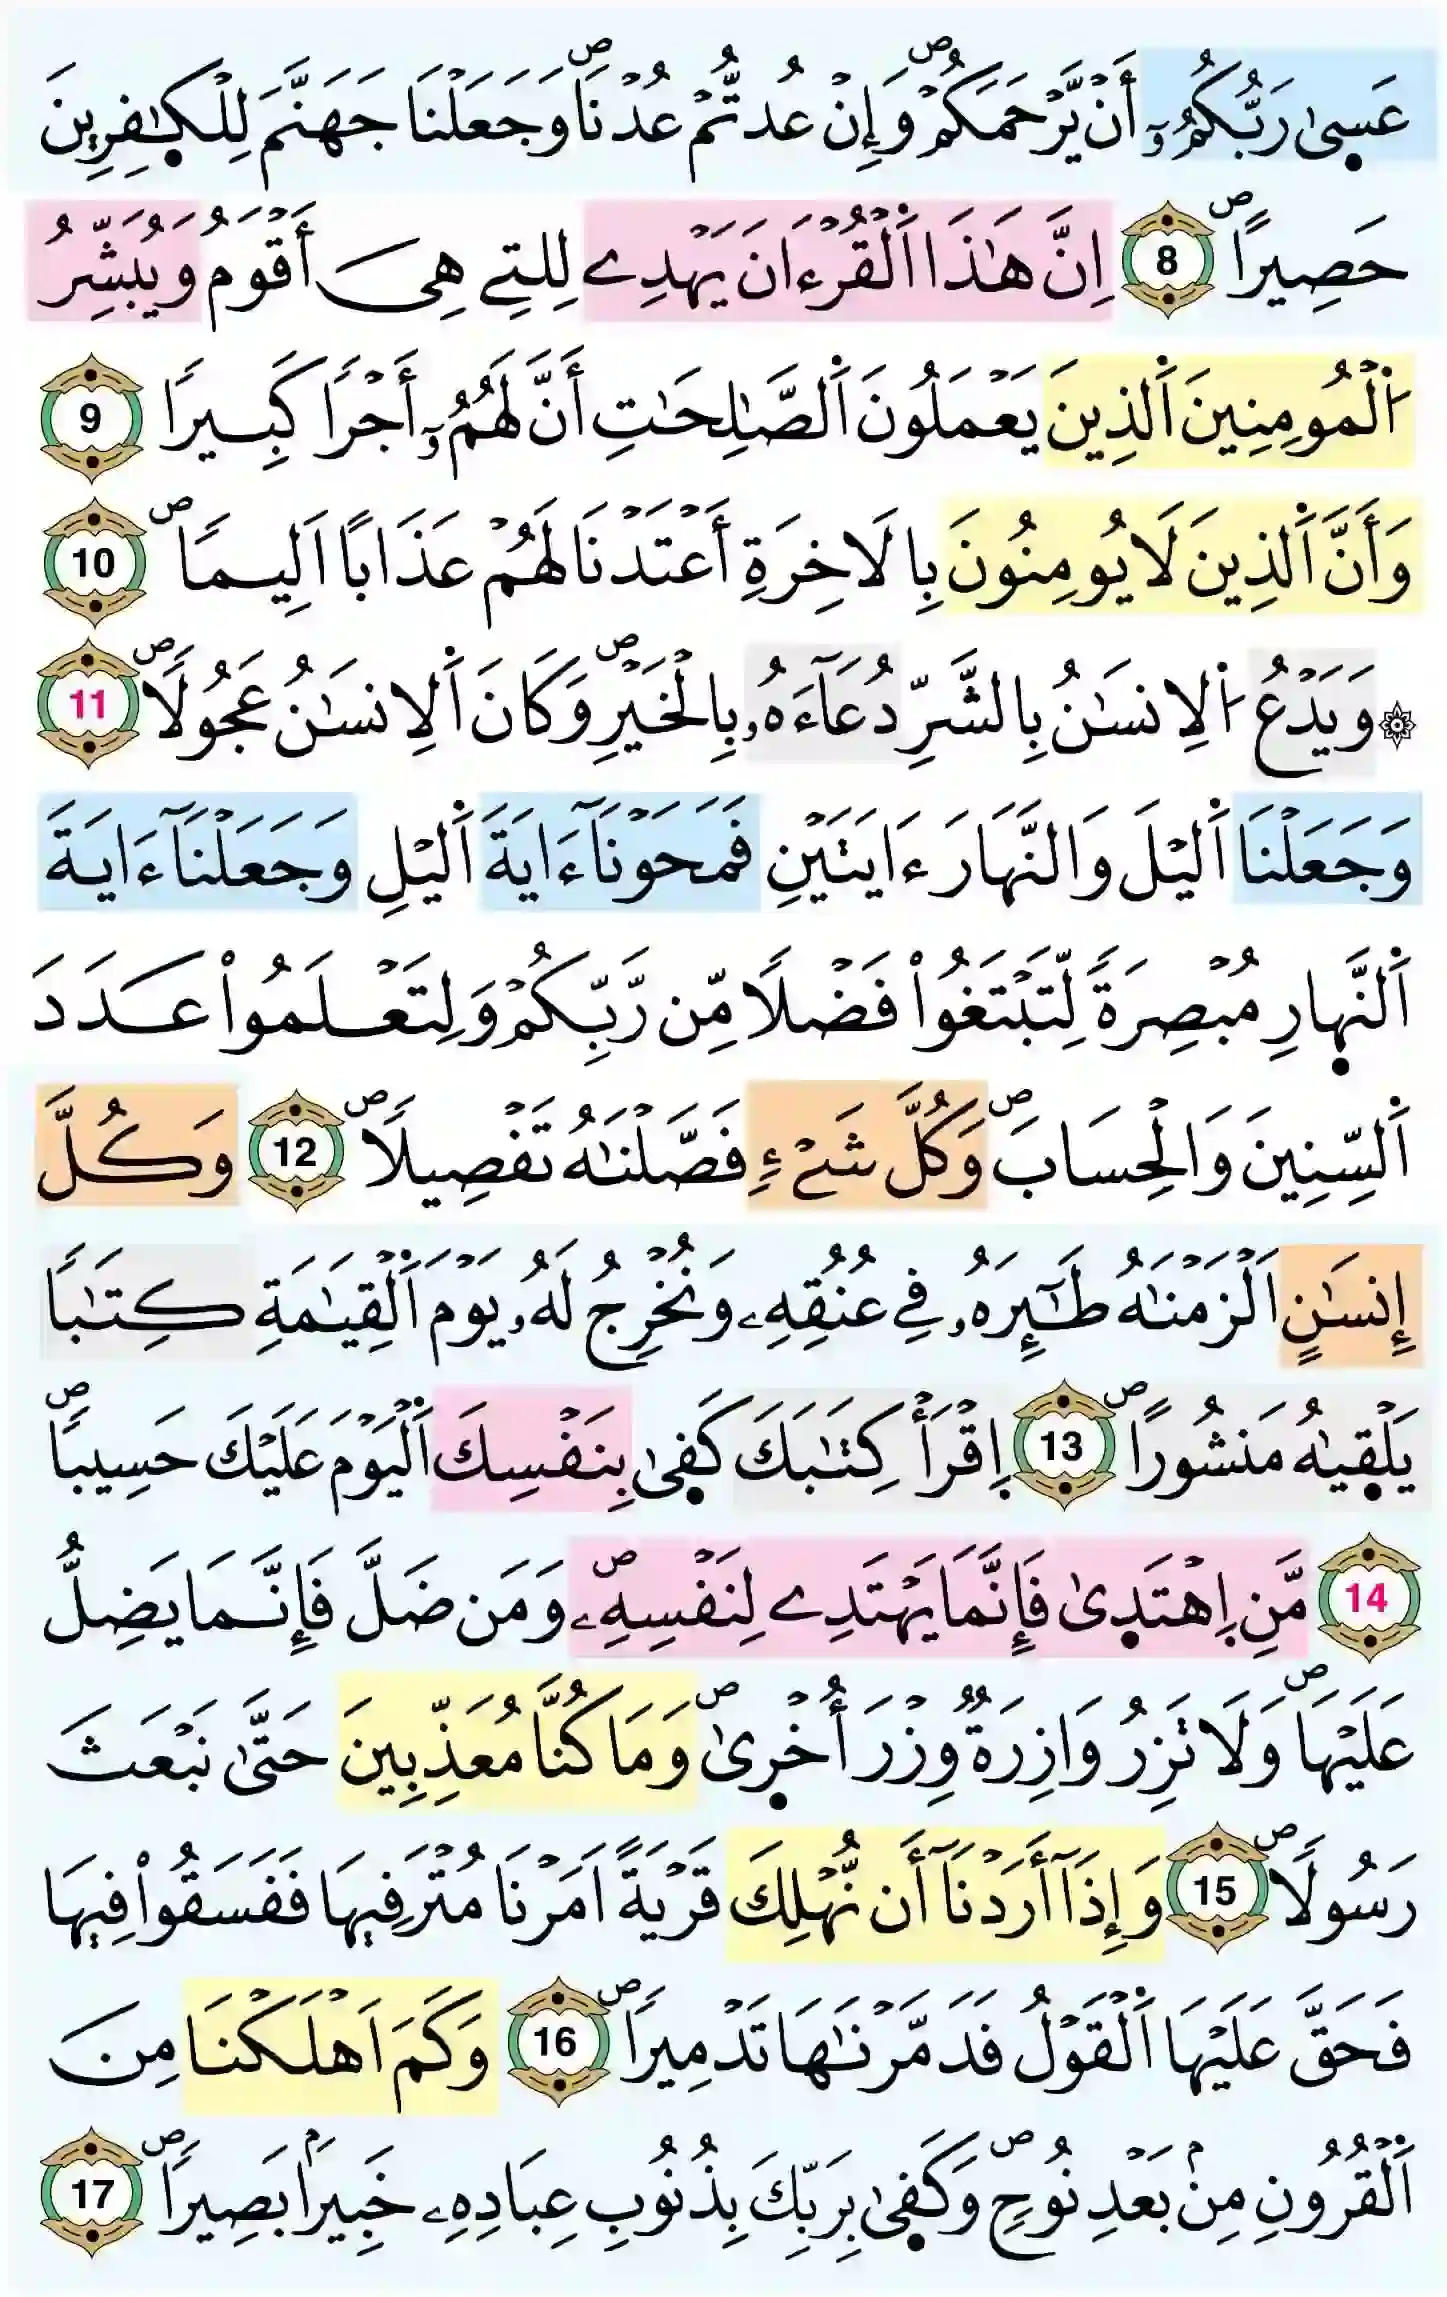 عَسٜىٰ رَبُّكُمُۥٓ أَنْ يَّرْحَمَكُمْۖ وَإِنْ عُدتُّمْ عُدْنَاۖ وَجَعَلْنَا جَهَنَّمَ لِلْكٰٜفِرِينَ
حَصِيراًۖ 8 اِنَّ هَٰذَا اَ۬لْقُرْءَانَ يَهْدِے لِلتِے هِيَ أَقْوَمُ وَيُبَشِّرُ
اُ۬لْمُومِنِينَ اَ۬لذِينَ يَعْمَلُونَ اَ۬لصَّٰلِحَٰتِ أَنَّ لَهُمُۥٓ أَجْراً كَبِيراً 9
وَأَنَّ اَ۬لذِينَ لَا يُومِنُونَ بِالَاخِرَةِ أَعْتَدْنَا لَهُمْ عَذَاباً اَلِيماًۖ 10
۞ وَيَدْعُ اُ۬لِانسَٰنُ بِالشَّرِّ دُعَآءَهُۥ بِالْخَيْرِۖ وَكَانَ اَ۬لِانسَٰنُ عَجُولاًۖ 11
وَجَعَلْنَا اَ۬ليْلَ وَالنَّهَارَ ءَايَتَيْنِ فَمَحَوْنَآ ءَايَةَ اَ۬ليْلِ وَجَعَلْنَآ ءَايَةَ
اَ۬لنَّهٜارِ مُبْصِرَةً لِّتَبْتَغُواْ فَضْلاً مِّن رَّبِّكُمْ وَلِتَعْلَمُواْ عَدَدَ
اَ۬لسِّنِينَ وَالْحِسَابَۖ وَكُلَّ شَےْءٍ فَصَّلْنَٰهُ تَفْصِيلاًۖ 12 وَكُلَّ
إِنسَٰنٍ اَلْزَمْنَٰهُ طَٰٓئِرَهُۥ فِے عُنُقِهِۦ وَنُخْرِجُ لَهُۥ يَوْمَ اَ۬لْقِيَٰمَةِ كِتَٰباً
يَلْقٜيٰهُ مَنشُوراًۖ 13 اِ۪قْرَأْ كِتَٰبَكَ كَفٜىٰ بِنَفْسِكَ اَ۬لْيَوْمَ عَلَيْكَ حَسِيباًۖ
14 مَّنِ اِ۪هْتَدٜىٰ فَإِنَّمَا يَهْتَدِے لِنَفْسِهِۦۖ وَمَن ضَلَّ فَإِنَّمَا يَضِلُّ
عَلَيْهَاۖ وَلَا تَزِرُ وَازِرَةٌ وِزْرَ أُخْرٜىٰۖ وَمَا كُنَّا مُعَذِّبِينَ حَتَّىٰ نَبْعَثَ
رَسُولاًۖ 15 وَإِذَآ أَرَدْنَآ أَن نُّهْلِكَ قَرْيَةً اَمَرْنَا مُتْرَفِيهَا فَفَسَقُواْ فِيهَا
فَحَقَّ عَلَيْهَا اَ۬لْقَوْلُ فَدَمَّرْنَٰهَا تَدْمِيراًۖ 16 وَكَمَ اَهْلَكْنَا مِنَ
اَ۬لْقُرُونِ مِنۢ بَعْدِ نُوحٍۖ وَكَفٜىٰ بِرَبِّكَ بِذُنُوبِ عِبَادِهِۦ خَبِيراَۢ بَصِيراًۖ 17